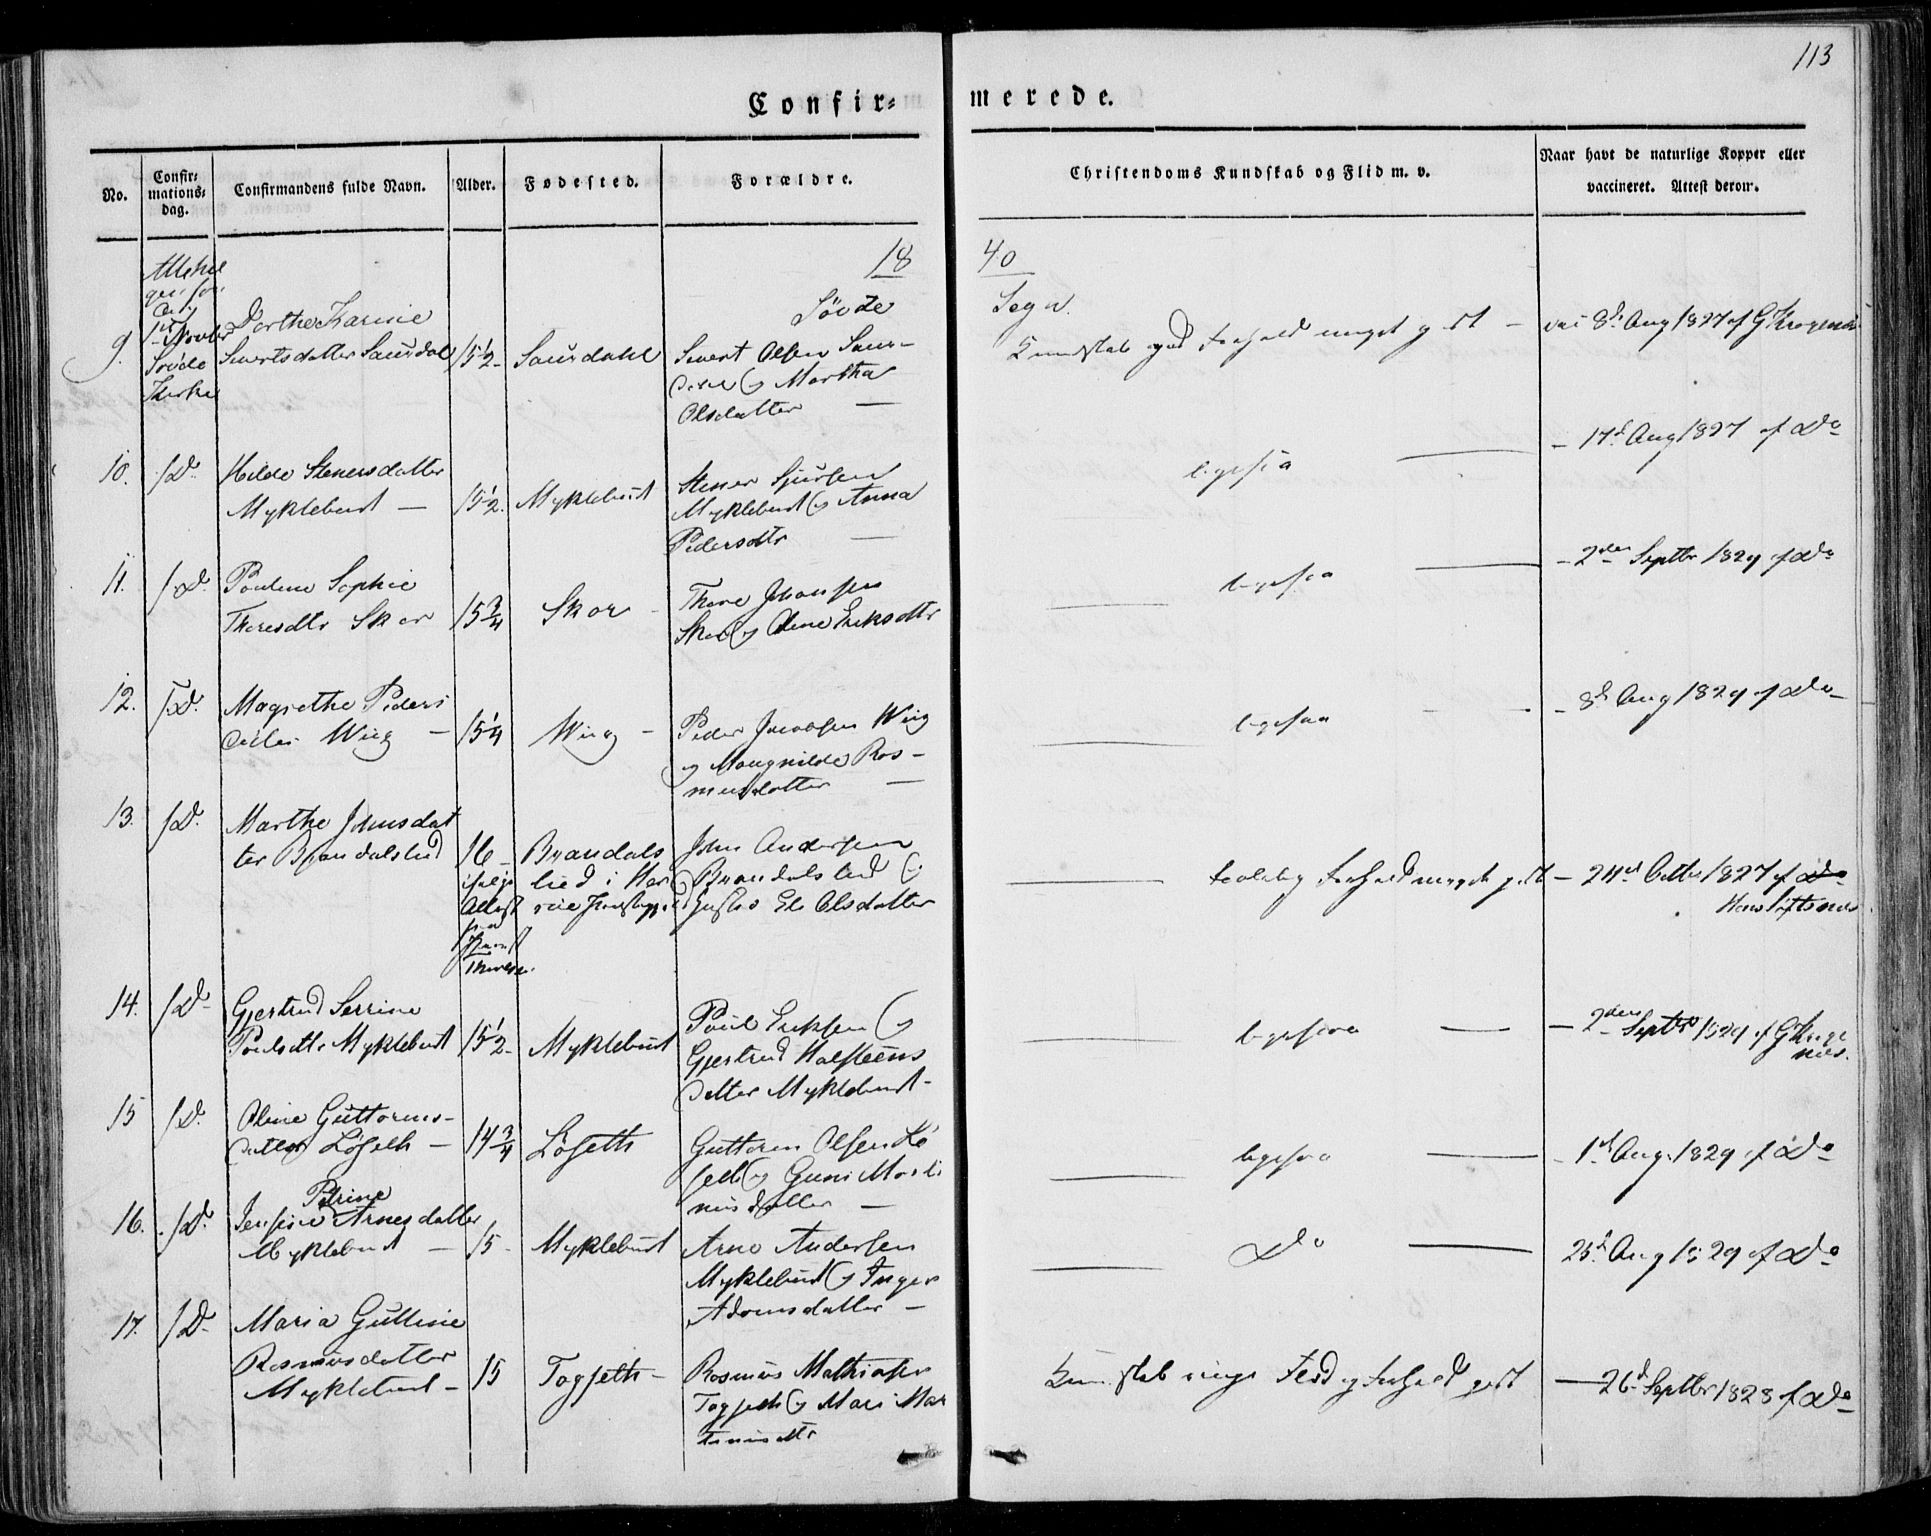 113
Confir=
merede.
No.
Confir=
mations=
dag.
Confirmandens fulde Navn.
Alder.
Fødested.
Forældre.
Christendoms Kundskab og Flid m. v.
Naar havt de naturlige Kopper eller
vaccineret. Attest derom.
18
40
Søvde
Sogn.
9.
1st Novbr
Søvde
Kirke
Dorthe Karine
Sivertsdatter Saurdal
15½
Saurdahl
Sivert Olsen Saur-
dal og Martha
Olsdatter
Kundskab god Forhold meget godt
vac 8d Aug 1827 af G Krogenæs
10.
D.
Hilde Steneersdatter
Myklebust
15½
Myklebust
Stener Sjursen
Myklebust og Anna
Pedersdtr
ligesaa
17d Aug 1827 af Do
11.
D.
Pouline Sophie
Thoresdtr Skor
15¾
Skor
Thore Johansen
Skor og Oline Eriksdtr
ligesaa
2den Septbr 1829 af Do
12.
D.
Magrethe Peders
datter Wiig
15¼
Wiig
Peder Jacobsen Wiig
og Mangnilde Ras-
musdatter
ligesaa
8d Aug 1829 af Do
13.
D.
Marthe Johnsdat
ter Brandalslied
16
ifølge
Attest
fra
Brandals
lied i Ha
John Andersen
Brandalslied og
Olsdatter
taalelig Forhold meget godt
24d Octbr 1827 af Do
14.
D.
Gjertrud Serrine
Poulsdtr Myklebust
15½
Myklebust
Poul Eriksen og
Gjertrud Halsteens
datter Myklebust
ligesaa
2den Septbr 1829 af G Kroge
næs.
15
D.
Oline Guttorms-
datter Løseth
14¾
Løseth
Guttorm Olsen Lø
seth og Guni Marti
nusdatter
ligesaa
1d Aug. 1829 af Do
16.
D.
Petrine
Jensine Arnesdatter
Myklebust
15
Myklebust
Arne Andersen
Myklebust og Inger
Adamsdatter
Do
25d Aug 1829 af Do
17.
D.
Maria Guttine
Rasmusdatter
Myklebust
15
Togseth
Rasmus Mathiasen
Togseth og Mari Mar
tinusdtr
Kundskab ringe Flid og Forhold godt
26d Septbr 1828 af Do